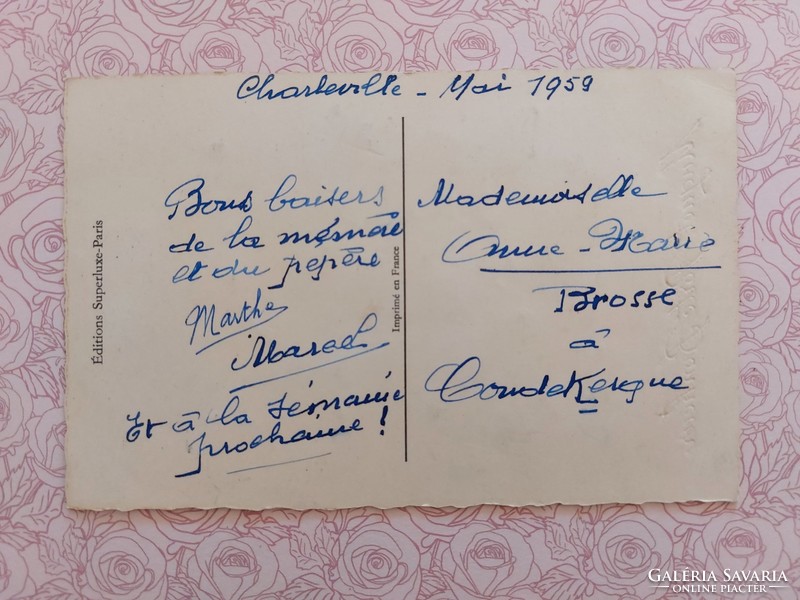 Charleville - Mai 1959
Bons baisers
de la mémère
et du pépère
Marthe
Marcel
Et à la sémaine
prochaine !
Mademoiselle
Anne-Marie
Brosse
à
Coudekerque
Éditions Superluxe-Paris
Imprimé en France
GALÉRIA SAVARIA
ONLINE PIACTÉR